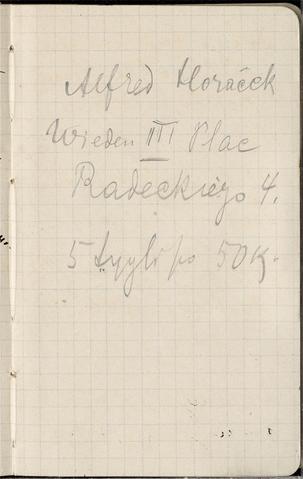 Alfred Horáček
Wieden III Plac
Radeckiego 4.
5 po 50 K.